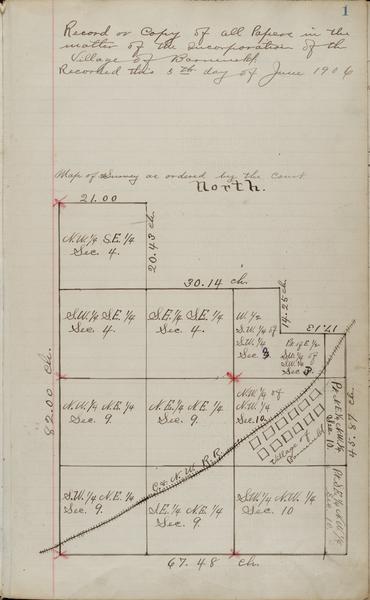 1
Record or Copy of all Papers in the
matter of the Incorporation of the
Village of
Recorded this 5th day of June 1906
Map of Survey as ordered by the Court
North.
21.00
N.W.¼ S.E.¼
Sec. 4.
20.43 ch.
30.14 ch.
14.25 ch.
17.13
S.W.¼ S.E.¼
Sec. 4.
S.E.¼ S.E.¼
Sec. 4.
W.½
S.W.¼ of
S.W.¼
Sec 3
Pt. of E½
S.W.¼ of
S.W.¼
Sec 3
82.00 ch.
N.W.¼ N.E.¼
Sec. 9.
N.E.¼ N.E.¼
Sec. 9.
N.W.¼ of
N.W.¼
Sec. 10
Village of
Pt. N.E.¼ N.W.¼
Sec. 10
45.87 ch.
C. & N.W. R.R.
S.W.¼ N.E.¼
Sec. 9.
S.E.¼ N.E.¼
Sec. 9.
S.W.¼ N.W.¼
Sec. 10
Pt. S.E.¼ N.W.¼
Sec. 10.
67.48 ch.